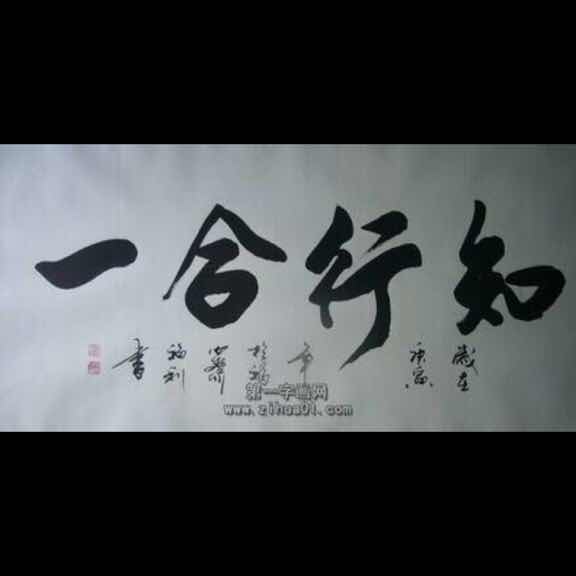 知行合一
岁在
庚寅
年
福利
书
第一字画网
www.zihua01.com